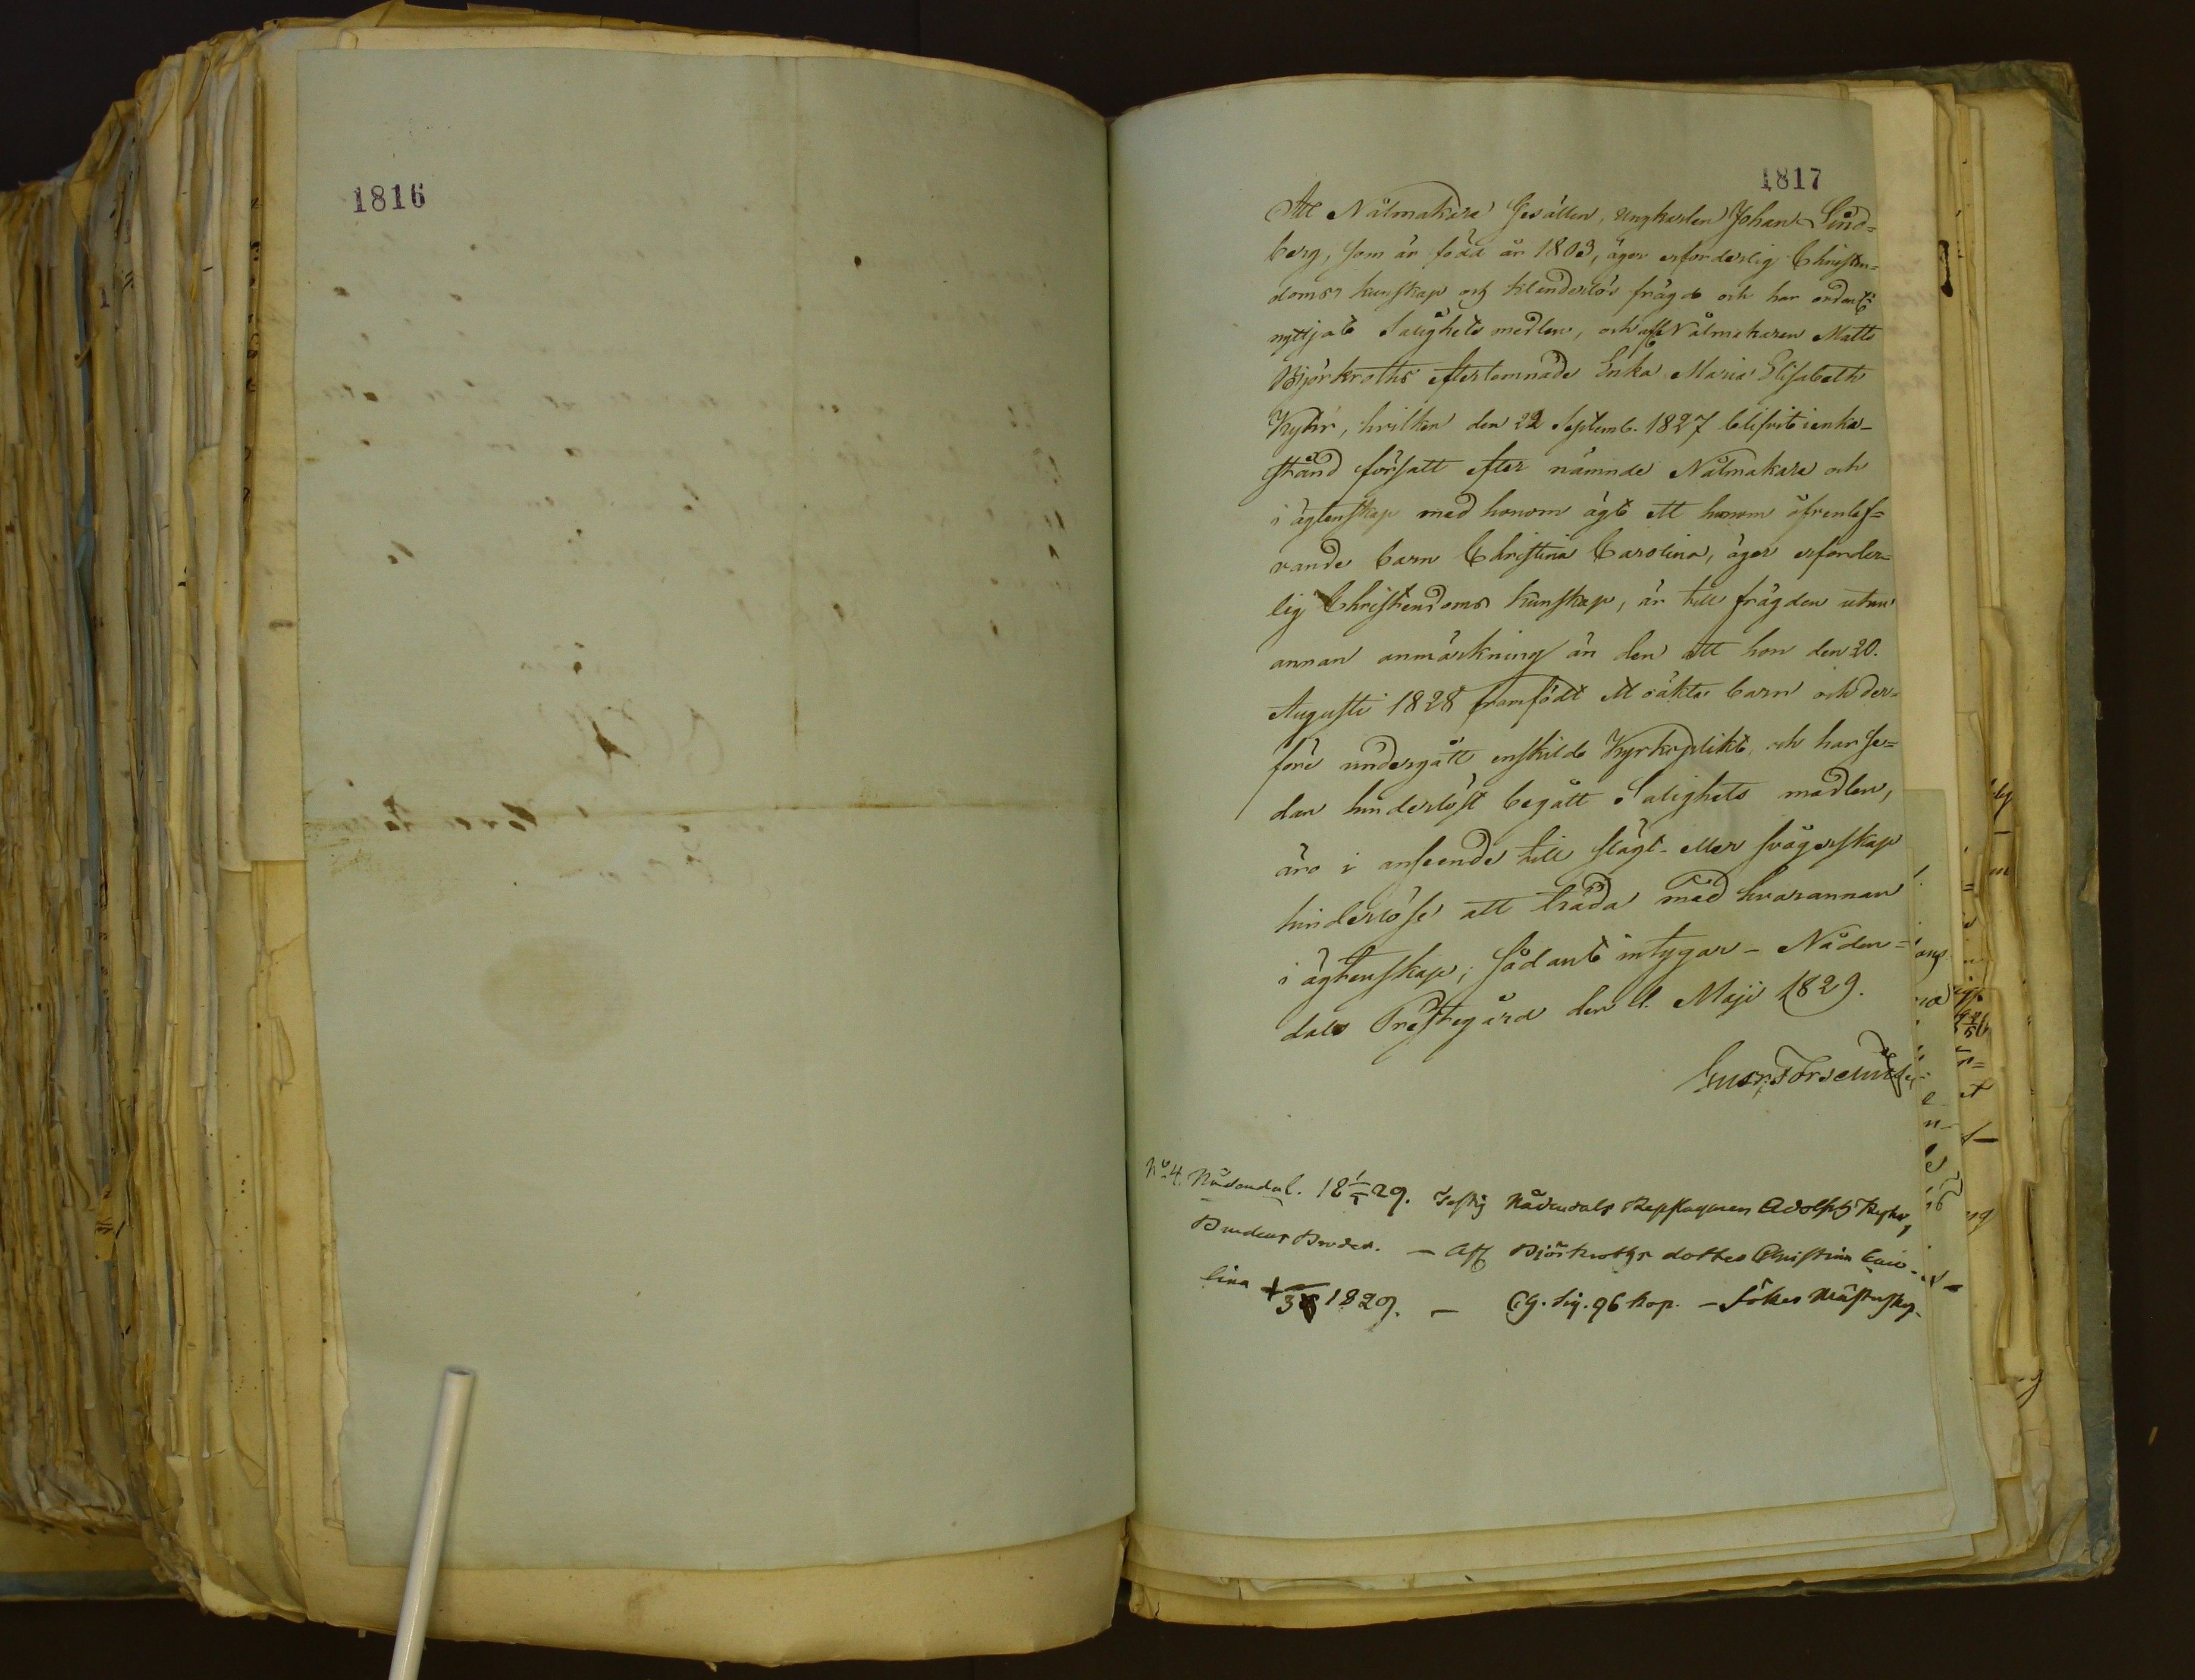 1816
1817
Att Nålmakare Gesällen, Ungkarlen Johan Lind=
berg, som är född år 1803, äger erforderlig Christen=
doms kunskap och klanderlös frägd och har ordentl:
nyttjat Salighets medlen, och afl: Nålmakaren Matts
Björkroths efterlemnade Enka Maria Elisabeth
Kyhr, hvilken den 22 Septemb. 1827 blifvit i enka-
stånd försatt efter nämnde Nålmakare och
i ägtenskap med honom ägt ett honom öfverlef=
vande barn Christina Carolina, äger erforder=
lig Christendoms kunskap, är till frägden utan
annan anmärkning än den att hon den 20.
Augusti 1828 framfödt ett oäkta barn och der=
före undergått enskild Kyrkoplikt, och har se=
dan hinderlöst begått Salighets medlen,
äro i anseende till slägt- eller svågerskap
hinderlöse att träda med hvarannan
i ägtenskap; sådant intygar - Nåden=
dals Prestegård den 1. Maji 1829.
Gust:
No 4. Nådendal. 18 1/5 29. Nådendals Adolph Kyhr,
Brudens Broder. - Afl Björkroths dotter Christina Caro-
lina + 1829. - 96 kop. - Söker